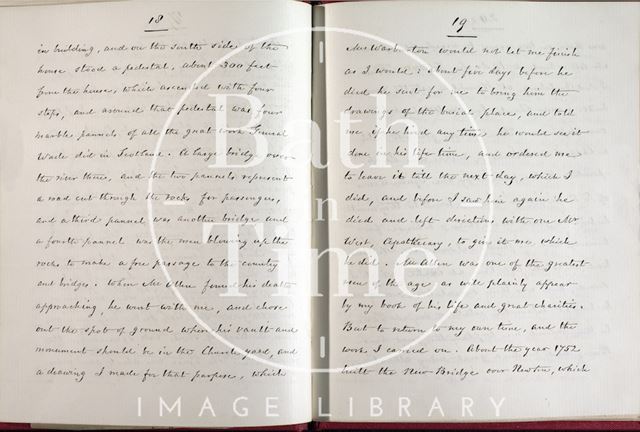 18
in building, and on the South side of the
house stood a pedestal, about 300 feet
from the house, which ascended with four
steps, and around that pedestal was four
marble pannels of all the great work General
Wade did in Scotland. A large bridge over
the river there, and the two pannels represent
a road cut through the rocks for passengers,
and a third pannel was another bridge and
a fourth pannel was the men blowing up the
rocks to make a free passage to the country
and bridges. When Mr Allen found his death
approaching, he went with me, and chose
out the spot of ground where his vault and
monument should be in the Church yard, and
a drawing I made for that purpose, which
19
Mr Warburton would not let me finish
as I would: about five days before he
died he sent for me to bring him the
drawings of the burial place, and told
me if he lived any time he would see it
done in his life time, and ordered me
to leave it till the next day, which I
did, and before I saw him again he
died and left directions with one Mr
West, Apothecary, to give it me which
he did. Mr Allen was one of the greatest
men of the age, as will plainly appear
by my book of his life and great charities.
But to return to my own time, and the
work I carried on. About the year 1752
built the New Bridge over Newton, which
Bath
in
Time
IMAGE LIBRARY